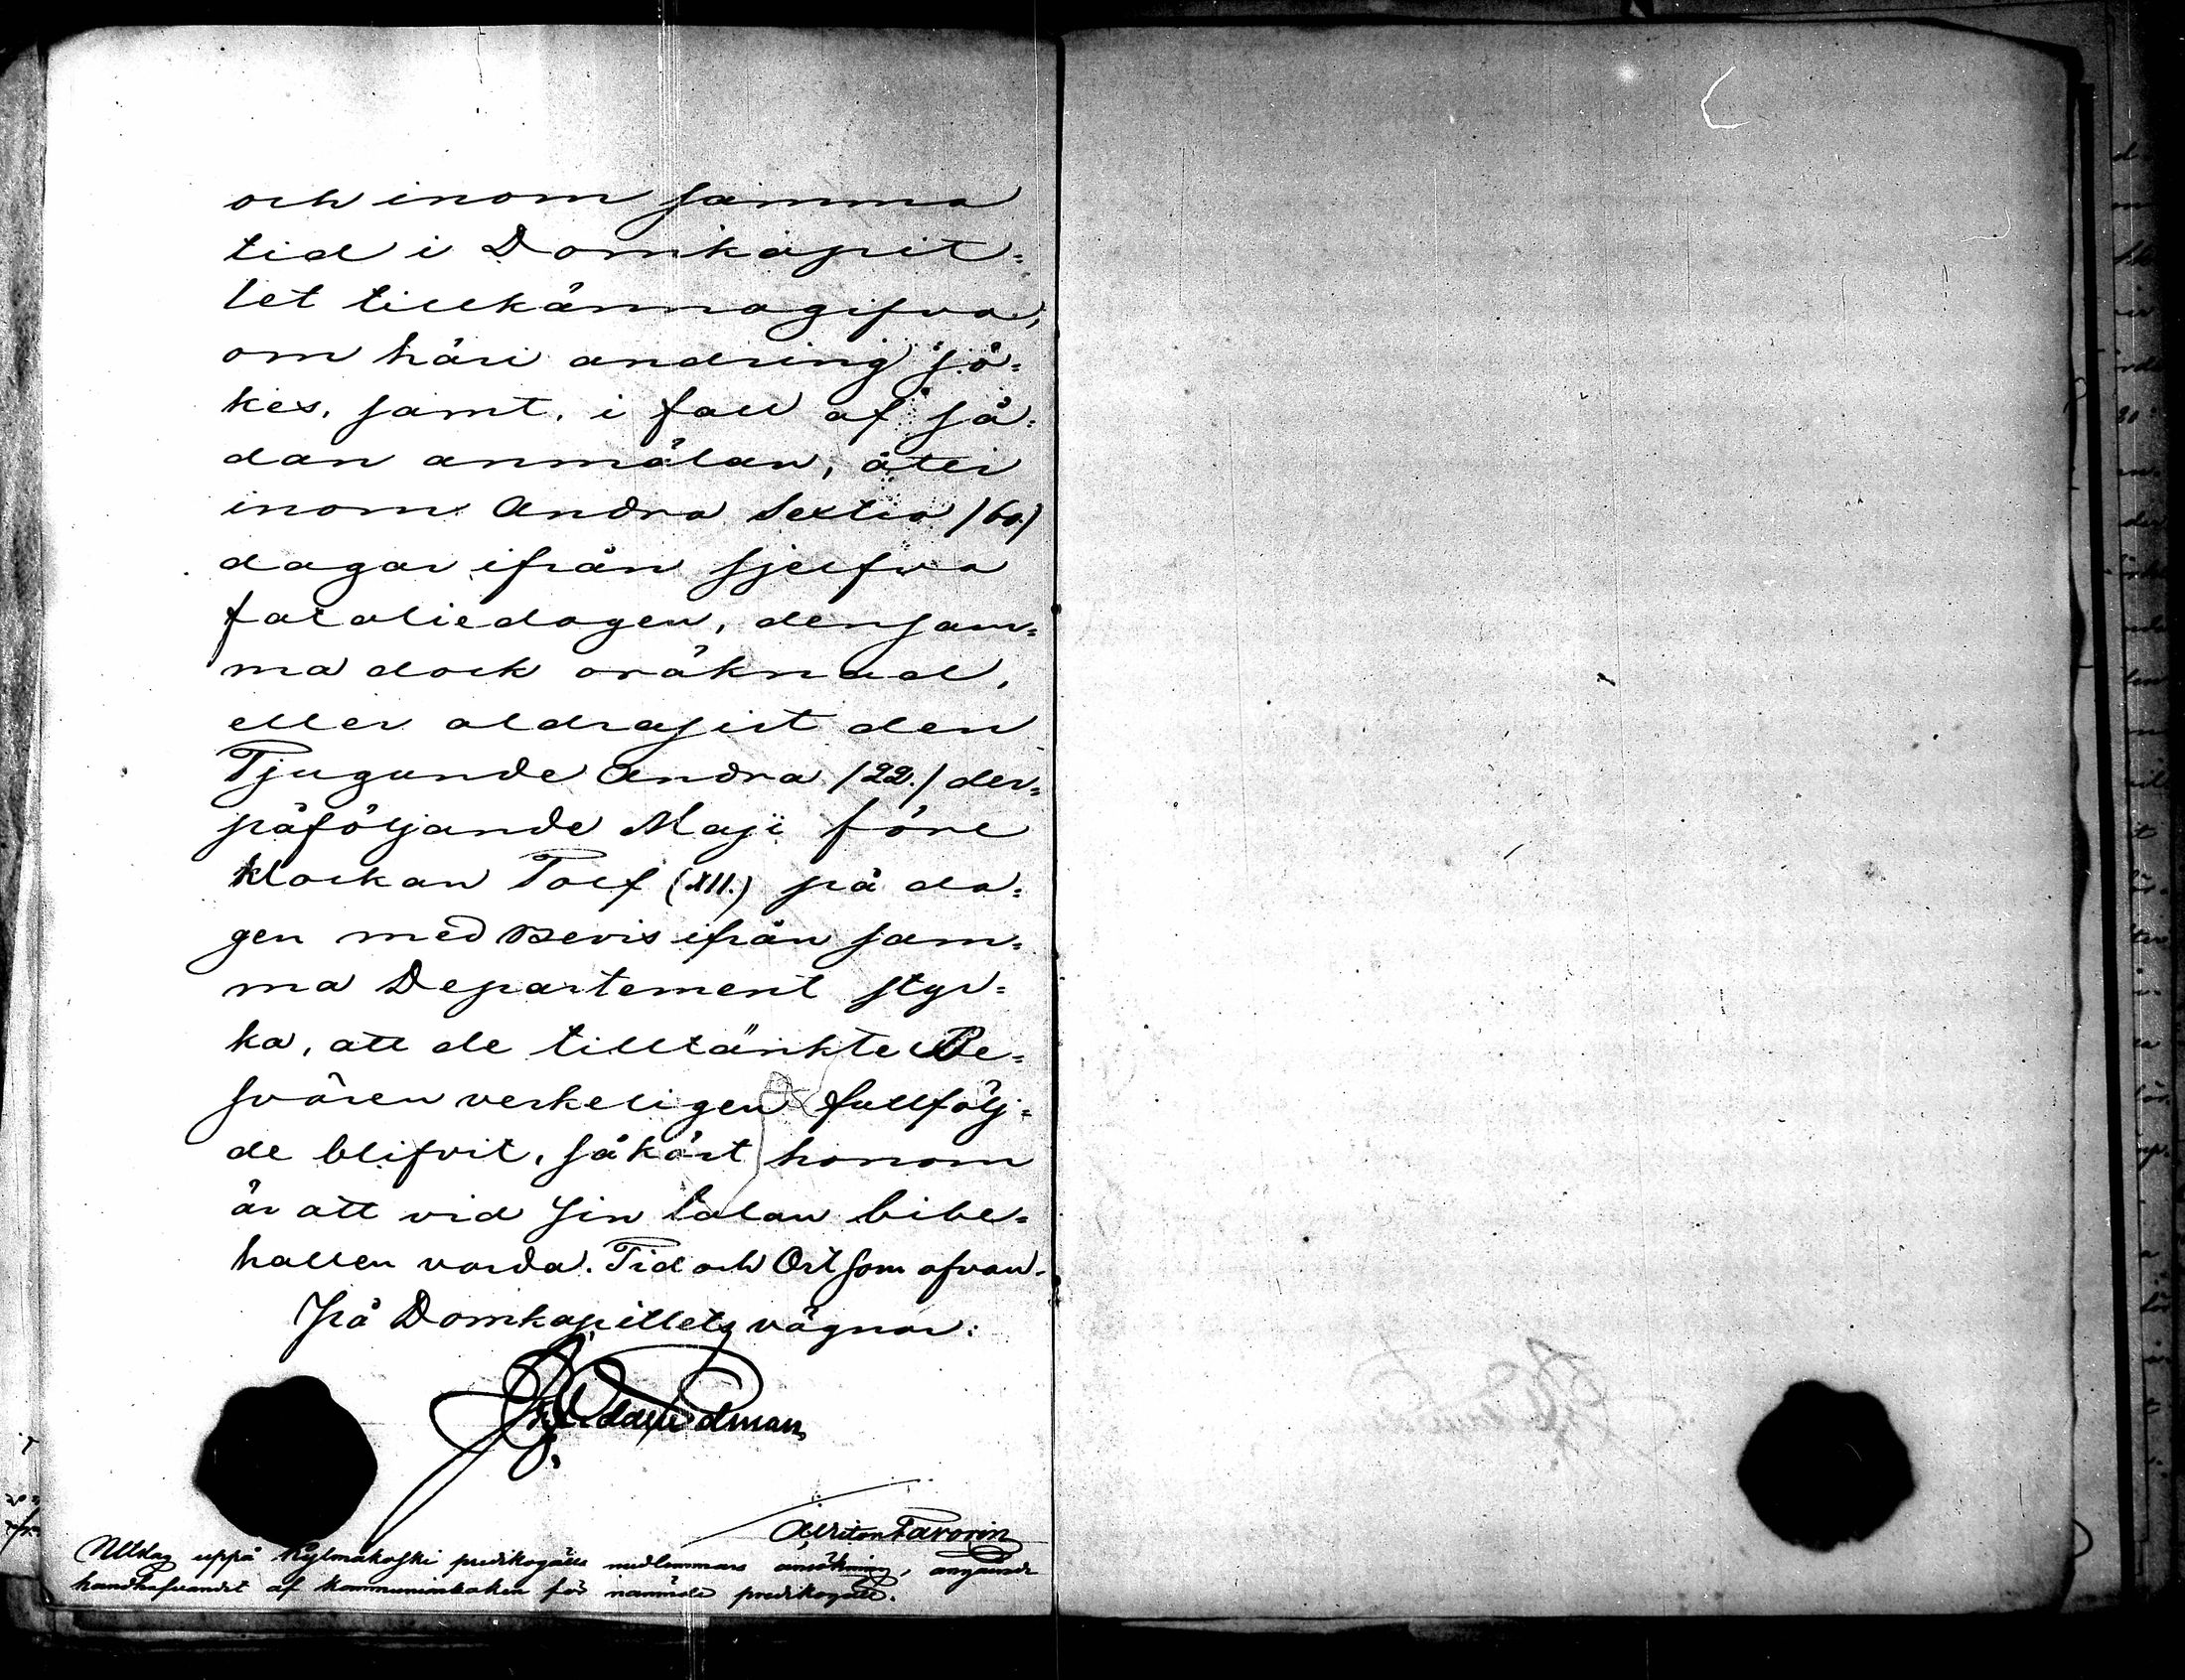 och inom samma
tid i Domkapit=
let tillkännagifva,
om häri ändring sö=
kes, samt, i fall af så=
dan anmälan, åter
inom Andra Sextio /60/
dagar ifrån sjelfva
fataliedagen, densam=
ma dock oräknad,
eller aldrasist den
Tjugunde Andra /22./ der=
påföljande Maji före
klockan Tolf (XII.) på da=
gen med Bevis ifrån sam=
ma Departement styr=
ka, att de tilltänkte Be=
svären verkeligen fullfölj=
de blifvit, såkärt honom
är att vid sin talan bibe=
hållen varda. Tid och Ort som ofvan.
På Domkapitlets vägnar:
Favorin
Utslag uppå Kylmäkoski predikogälls medlemmars ansökning, angående
handhafvandet af kommunionboken för nämnde predikogäll.